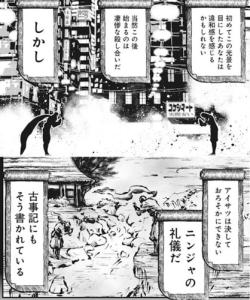 初めてこの光景を
目にしたあなたは
違和感を感じる
かもしれない
当然この後
始まるのは
凄惨な殺し合いだ
しかし
コケシマート
アイサツは決して
おろそかにできない
ニンジャの
礼儀だ
古事記にも
そう書かれている